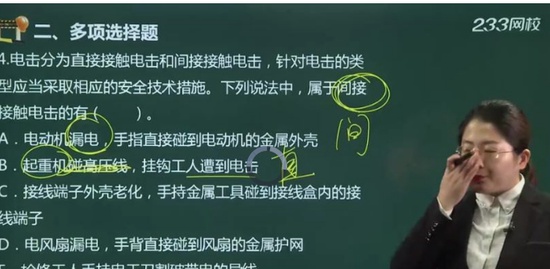 二、多项选择题
233网校
4.电击分为直接接触电击和间接接触电击，针对电击的类
型应当采取相应的安全技术措施。下列说法中，属于间接
接触电击的有（ ）。
A．电动机漏电，手指直接碰到电动机的金属外壳
[间]
B．起重机碰高压线，挂钩工人遭到电击
C．接线端子外壳老化，手持金属工具碰到接线盒内的接
线端子
D．电风扇漏电，手背直接碰到风扇的金属护网